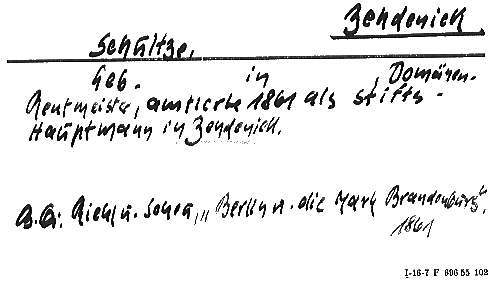 Zehdenick.
Schultze,
Geb. in , Domänen-
Rentmeister, amtierte 1861 als Stifts-
Hauptmann in Zehdenick.
Riehl u. Scheu, „Berlin u. die Mark Brandenburg",
1861
I-16-7 F 696 55 102